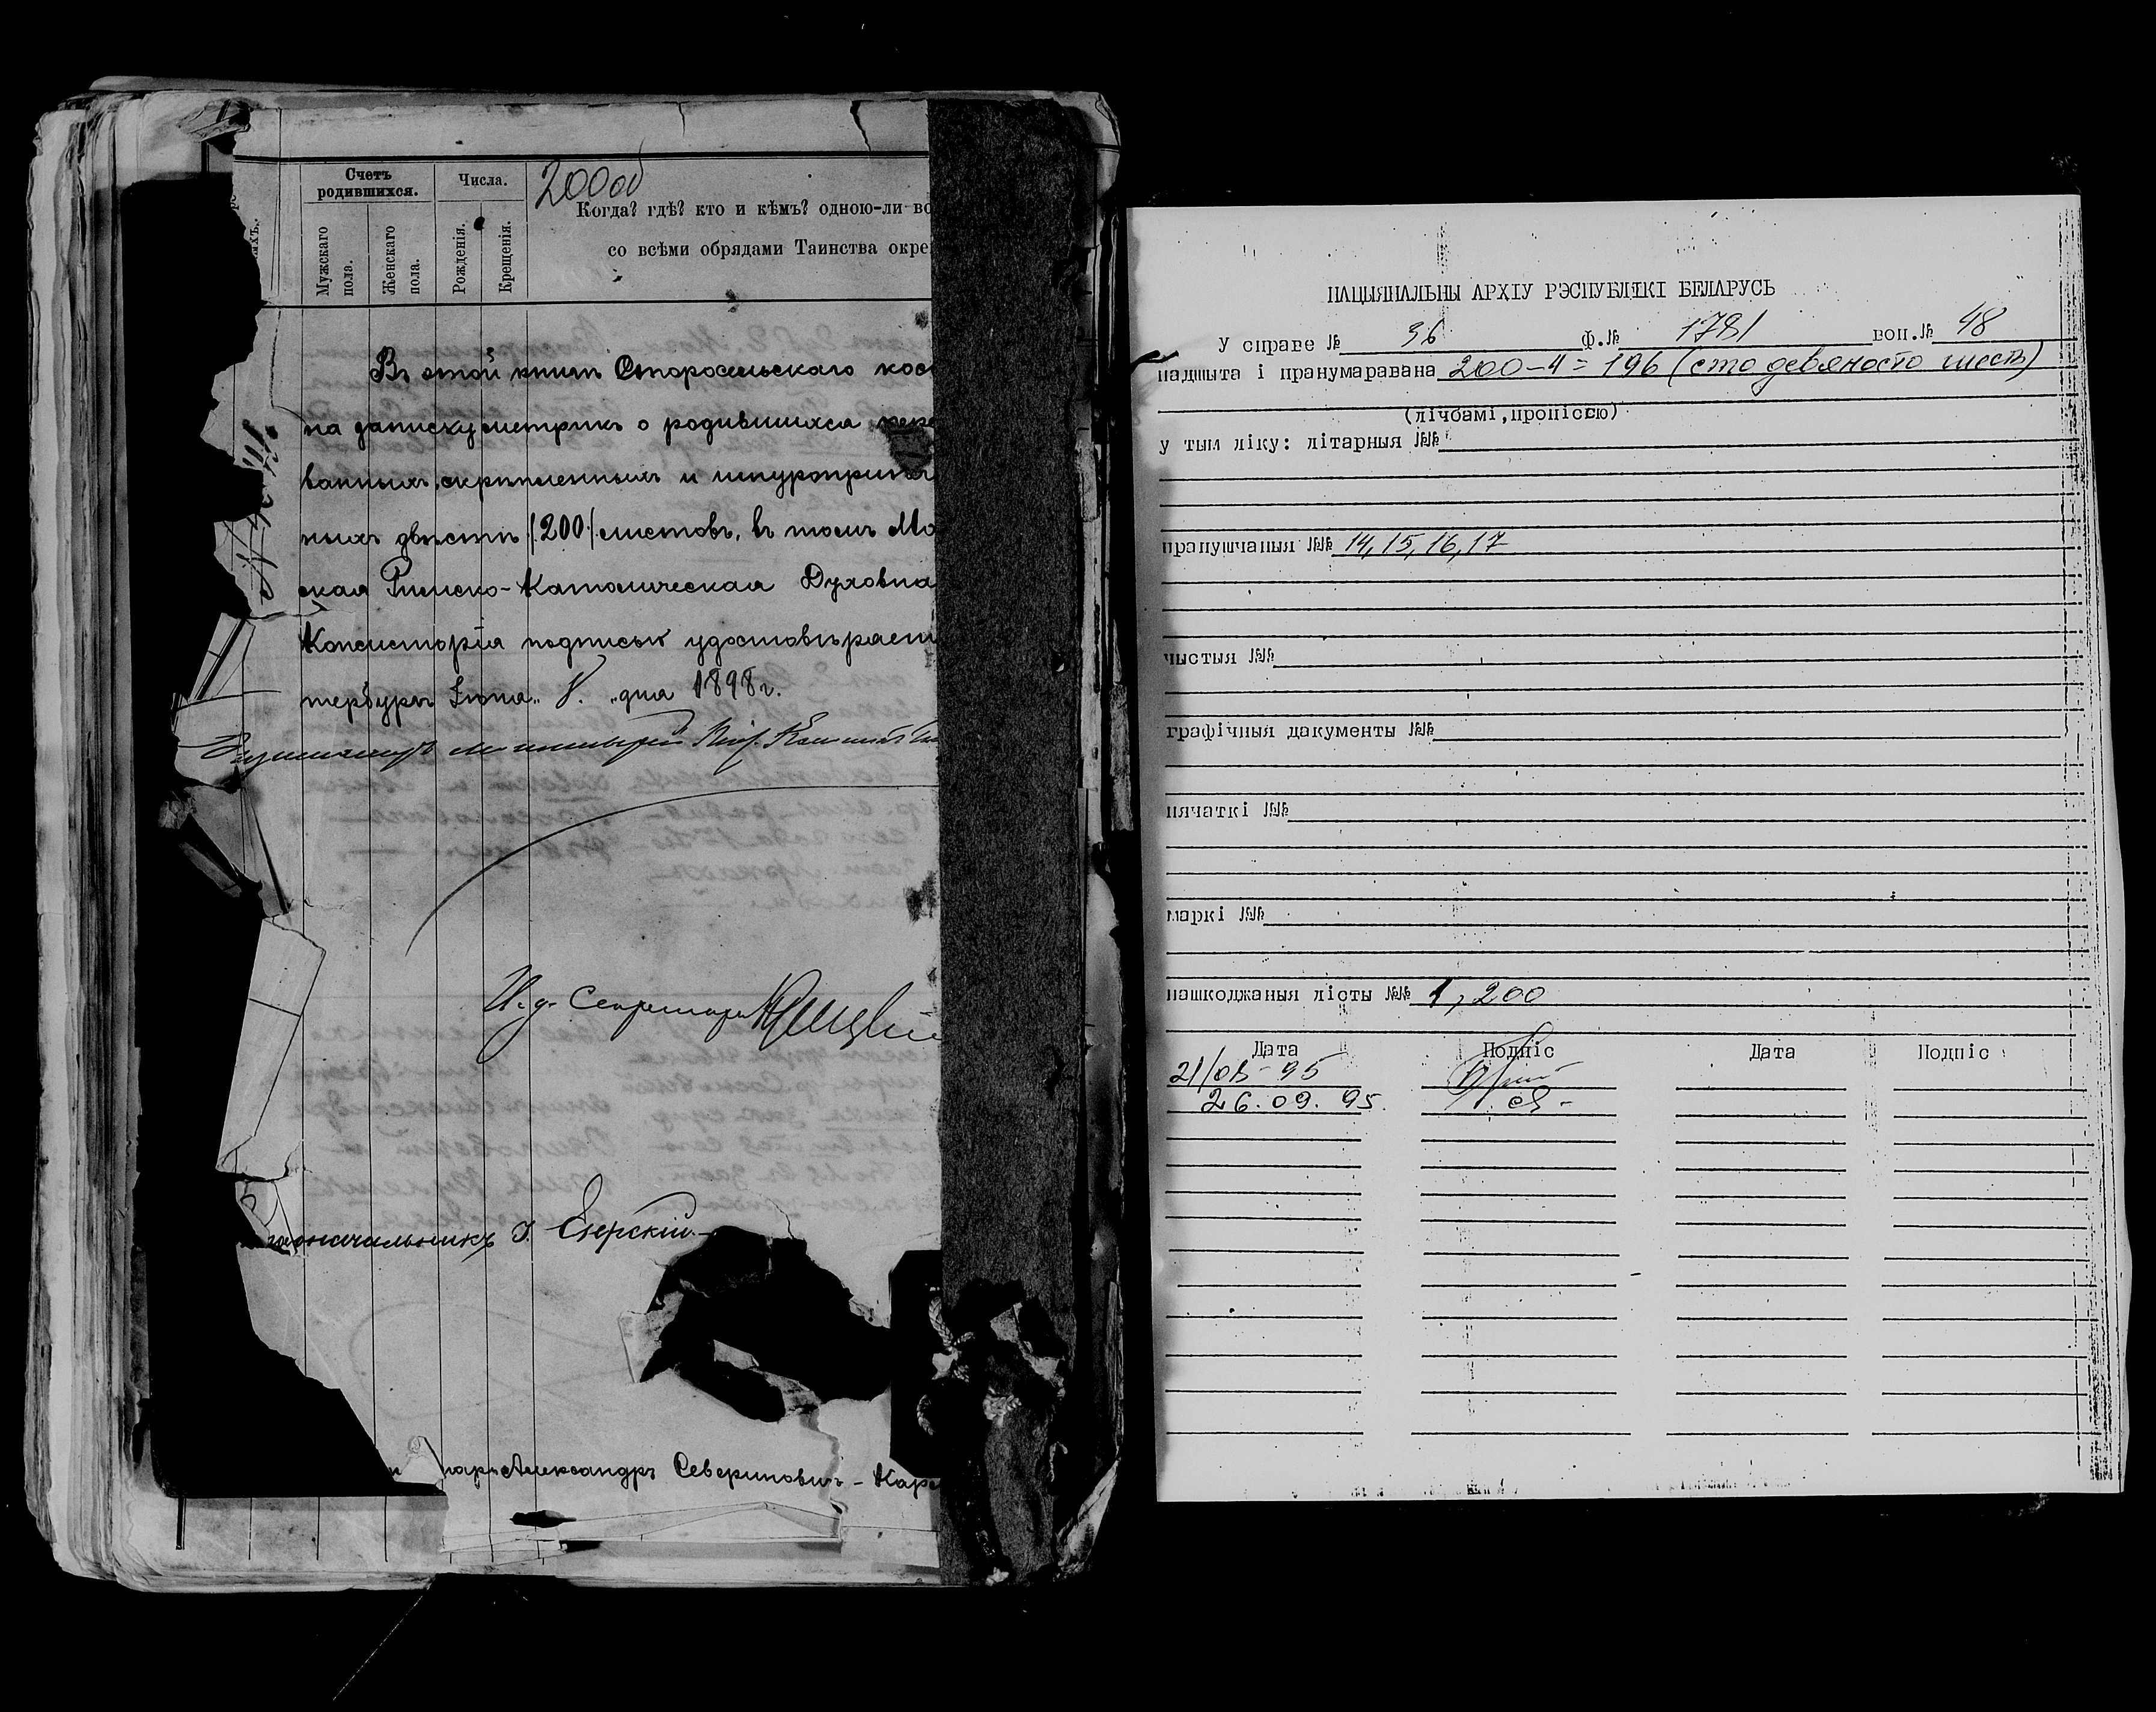 Счетъ родившихся.
Числа.
200об
Мужскаго пола.
Женскаго пола.
Рожденія.
Крещенія.
Когда? гдѣ? кто и кѣмъ? одною-ли во
со всѣми обрядами Таинства окре
Въ этой книгѣ Старосельскаго кос
на записку метрикъ о родившихся
ванныхъ, скрѣпленныхъ и шнуроприпеч
ныхъ двѣсти /200/ листовъ, въ томъ Мо
ская Римско-Католическая Духовна
Консисторія подписью удостовѣряет
тербургъ Іюня „8“ дня 1898 г.
И. д. Секретаря
оначальникъ І. Езерскій.
Александръ Севериновичъ - Каре
НАЦЫЯНАЛЬНЫ АРХІУ РЭСПУБЛІКІ БЕЛАРУСЬ
У справе № 36 ф.№ 1781 воп.№ 48
падшыта і пранумаравана 200-4=196 (сто девяносто шесть)
(лічбамі,пропіссю)
у тым ліку: літарныя №№
прапушчаныя №№ 14, 15, 16, 17
чыстыя №№
графічныя дакументы №№
пячаткі №№
маркі №№
пашкоджаныя лісты №№ 1, 200
Дата Подпіс Дата Подпіс
21/08-95
26.09.95.